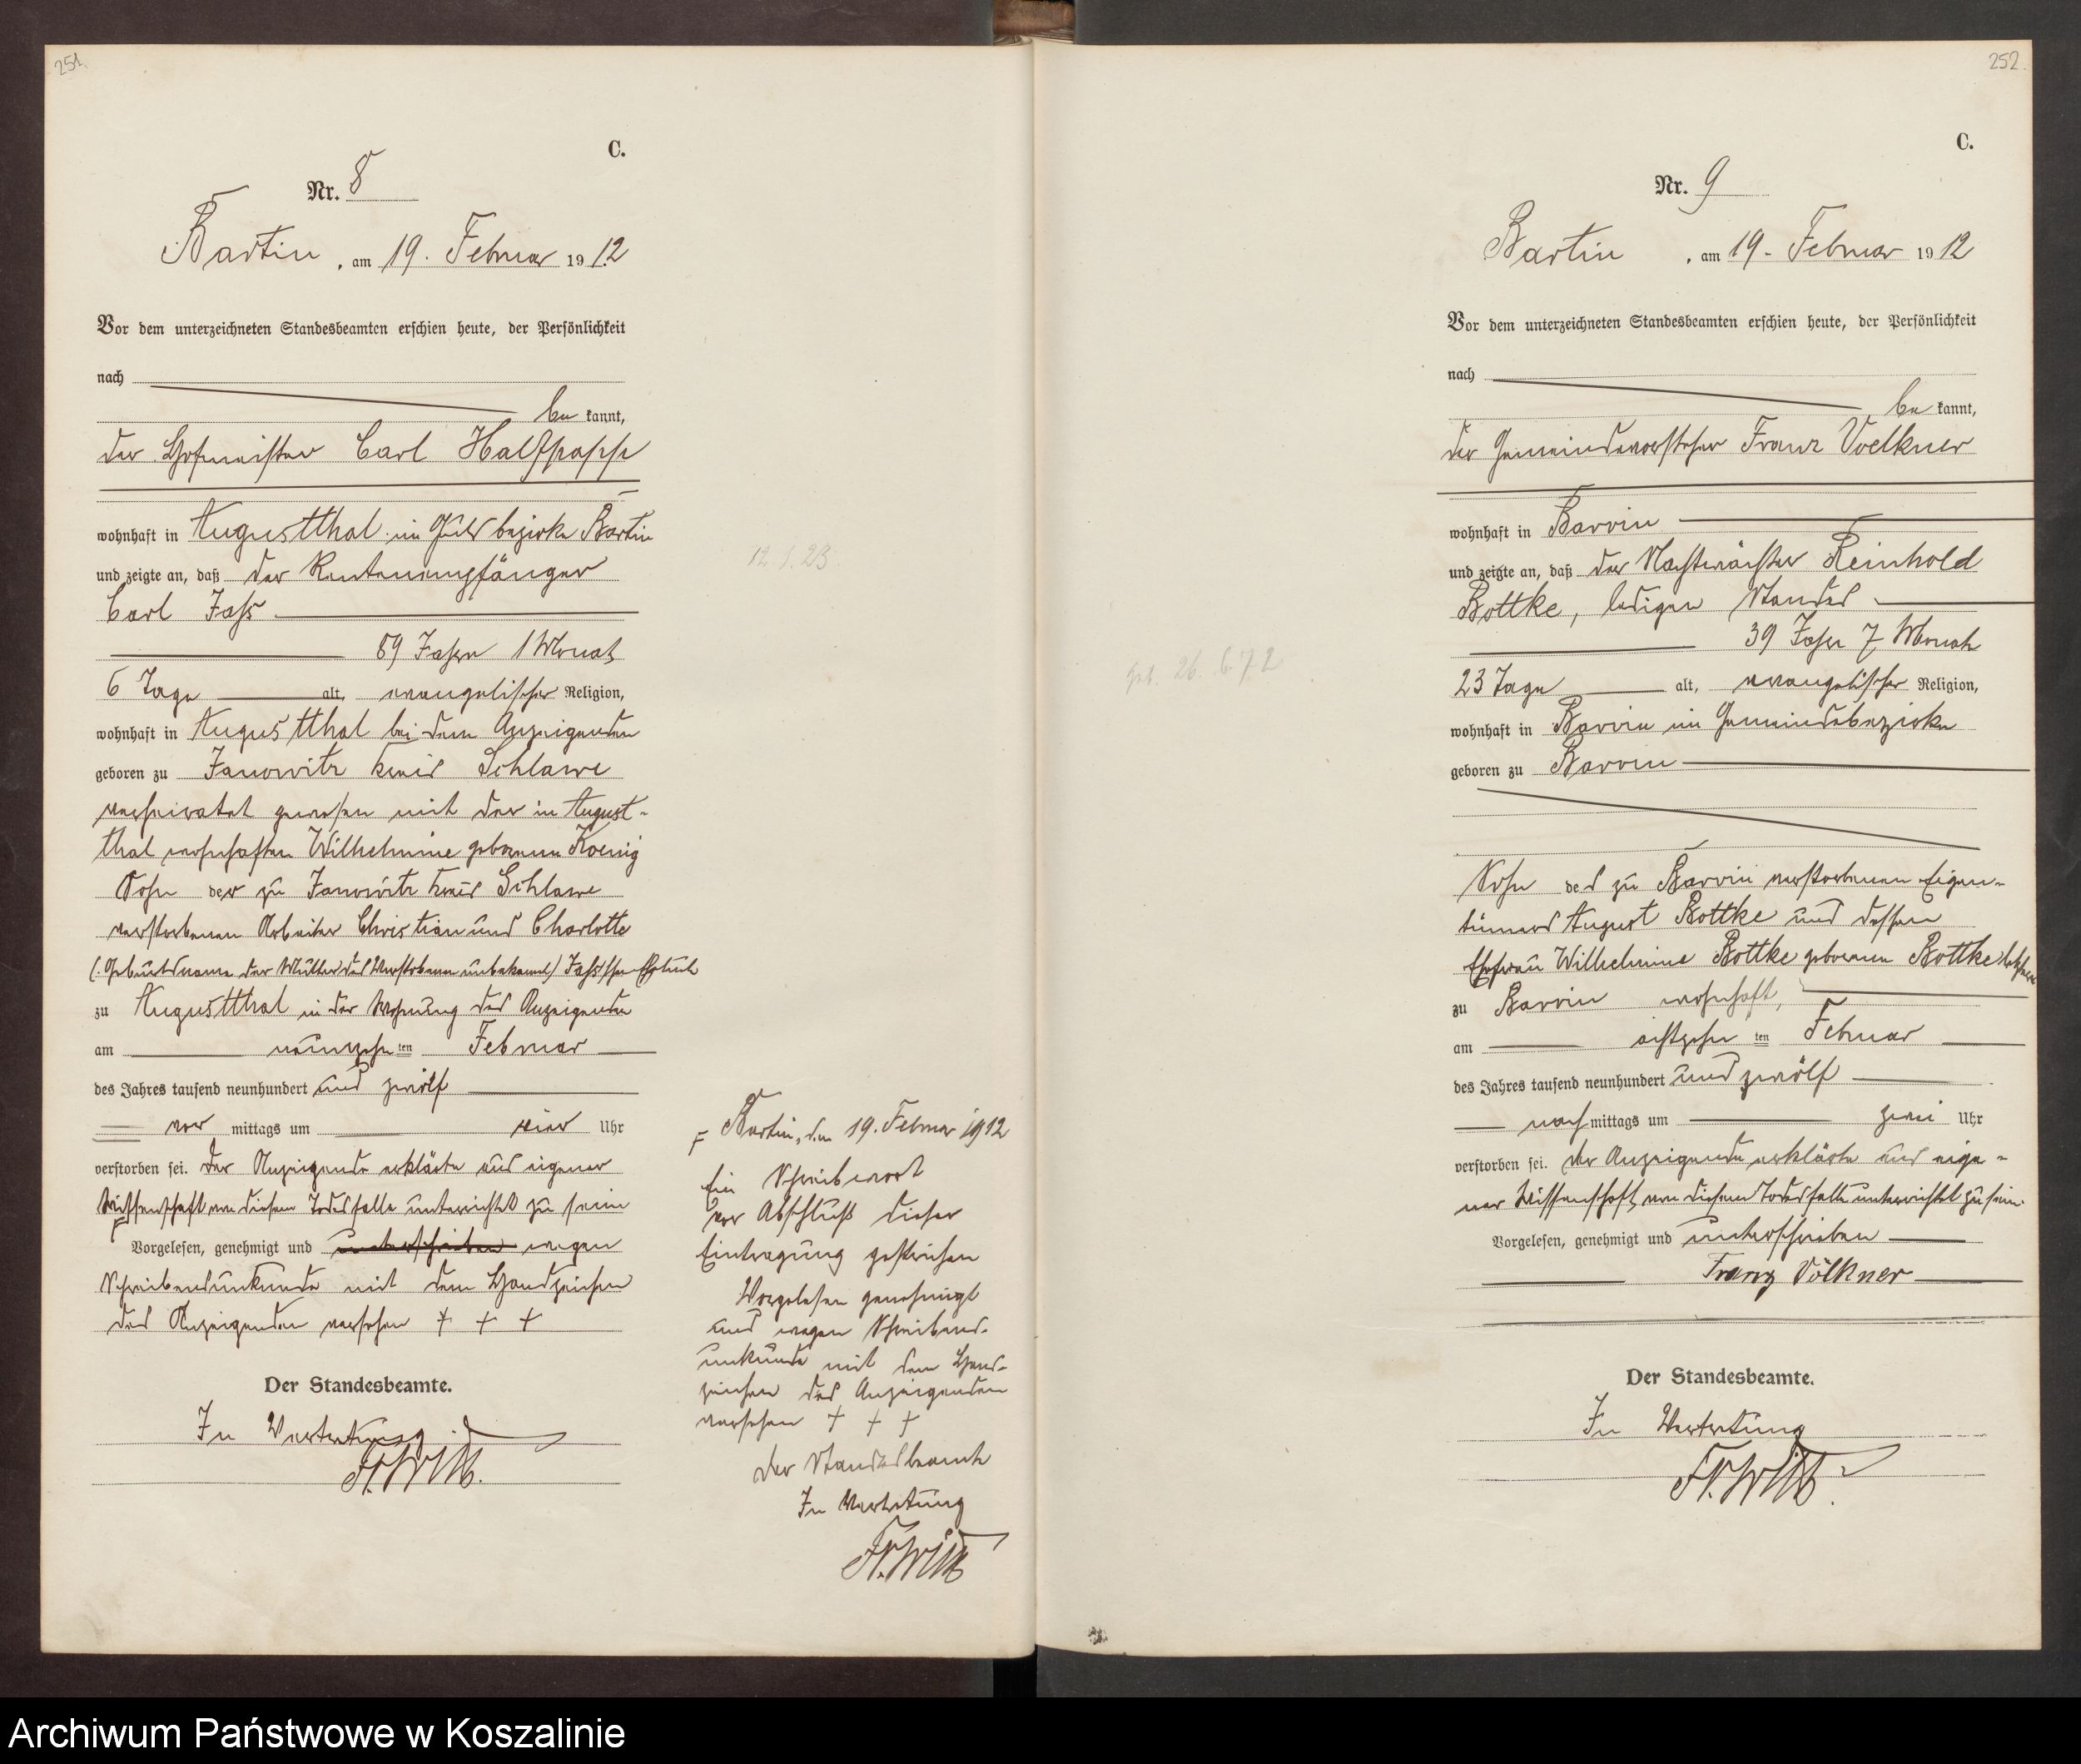 251.
C.
Nr. 8
Bartin, am 19. Februar 1912
Vor dem unterzeichneten Standesbeamten erschien heute, der Persönlichkeit
nach
be kannt,
der Hofmeister Carl Halfpapp
wohnhaft in Augustthal im Gutsbezirke Bartin
und zeigte an, daß der Rentenempfänger
Carl Jass
89 Jahre 1 Monat
6 Tage alt, evangelischer Religion,
wohnhaft in Augustthal bei dem Anzeigenden
geboren zu Janowitz Kreis Schlawe
verheiratet gewesen mit der in August-
thal wohnhaften Wilhelmine geborenen Koenig
Sohn der zu Janowitz Kreis Schlawe
verstorbenen Arbeiter Christian und Charlotte
(: Geburtsname der Mutter des Verstorbenen unbekannt) Jass'schen Eheleute
zu Augustthal in der Wohnung des Anzeigenden
am neunzehnten Februar
des Jahres tausend neunhundert und zwölf
vor mittags um vier Uhr
verstorben sei. Der Anzeigende erklärte aus eigener
Wissenschaft von diesem Todesfalle unterrichtet zu sein
Vorgelesen, genehmigt und unterschrieben wegen
Schreibensunkunde mit dem Handzeichen
des Anzeigenden versehen + + +
Der Standesbeamte.
In Vertretung
Fr. Witt.
12. 1. 23.
F Bartin, den 19. Februar 1912
Ein Schreibwort
vor Abschluß dieser
Eintragung gestrichen
Vorgelesen genehmigt
und wegen Schreibens-
unkunde mit dem Hand-
zeichen des Anzeigenden
versehen + + +
Der Standesbeamte
In Vertretung
Fr. Witt
252.
C.
Nr. 9
Bartin, am 19. Februar 1912
Vor dem unterzeichneten Standesbeamten erschien heute, der Persönlichkeit
nach
be kannt,
der Gemeindevorsteher Franz Voelkner
wohnhaft in Barvin
und zeigte an, daß der Nachtwächter Reinhold
Bottke, ledigen Standes
39 Jahre 7 Monate
23 Tage alt, evangelischer Religion,
wohnhaft in Barvin im Gemeindebezirke
geboren zu Barvin
Sohn des zu Barvin verstorbenen Eigen-
tümers August Bottke und dessen
Ehefrau Wilhelmine Bottke geborenen Bottke letztere
zu Barvin wohnhaft,
am achtzehnten Februar
des Jahres tausend neunhundert und zwölf
nach mittags um zwei Uhr
verstorben sei. Der Anzeigende erklärte aus eige-
ner Wissenschaft von diesem Todesfalle unterrichtet zu sein.
Vorgelesen, genehmigt und unterschrieben
Franz Völkner
Der Standesbeamte.
In Vertretung
Fr. Witt.
geb. 26. 6. 72
Archiwum Państwowe w Koszalinie